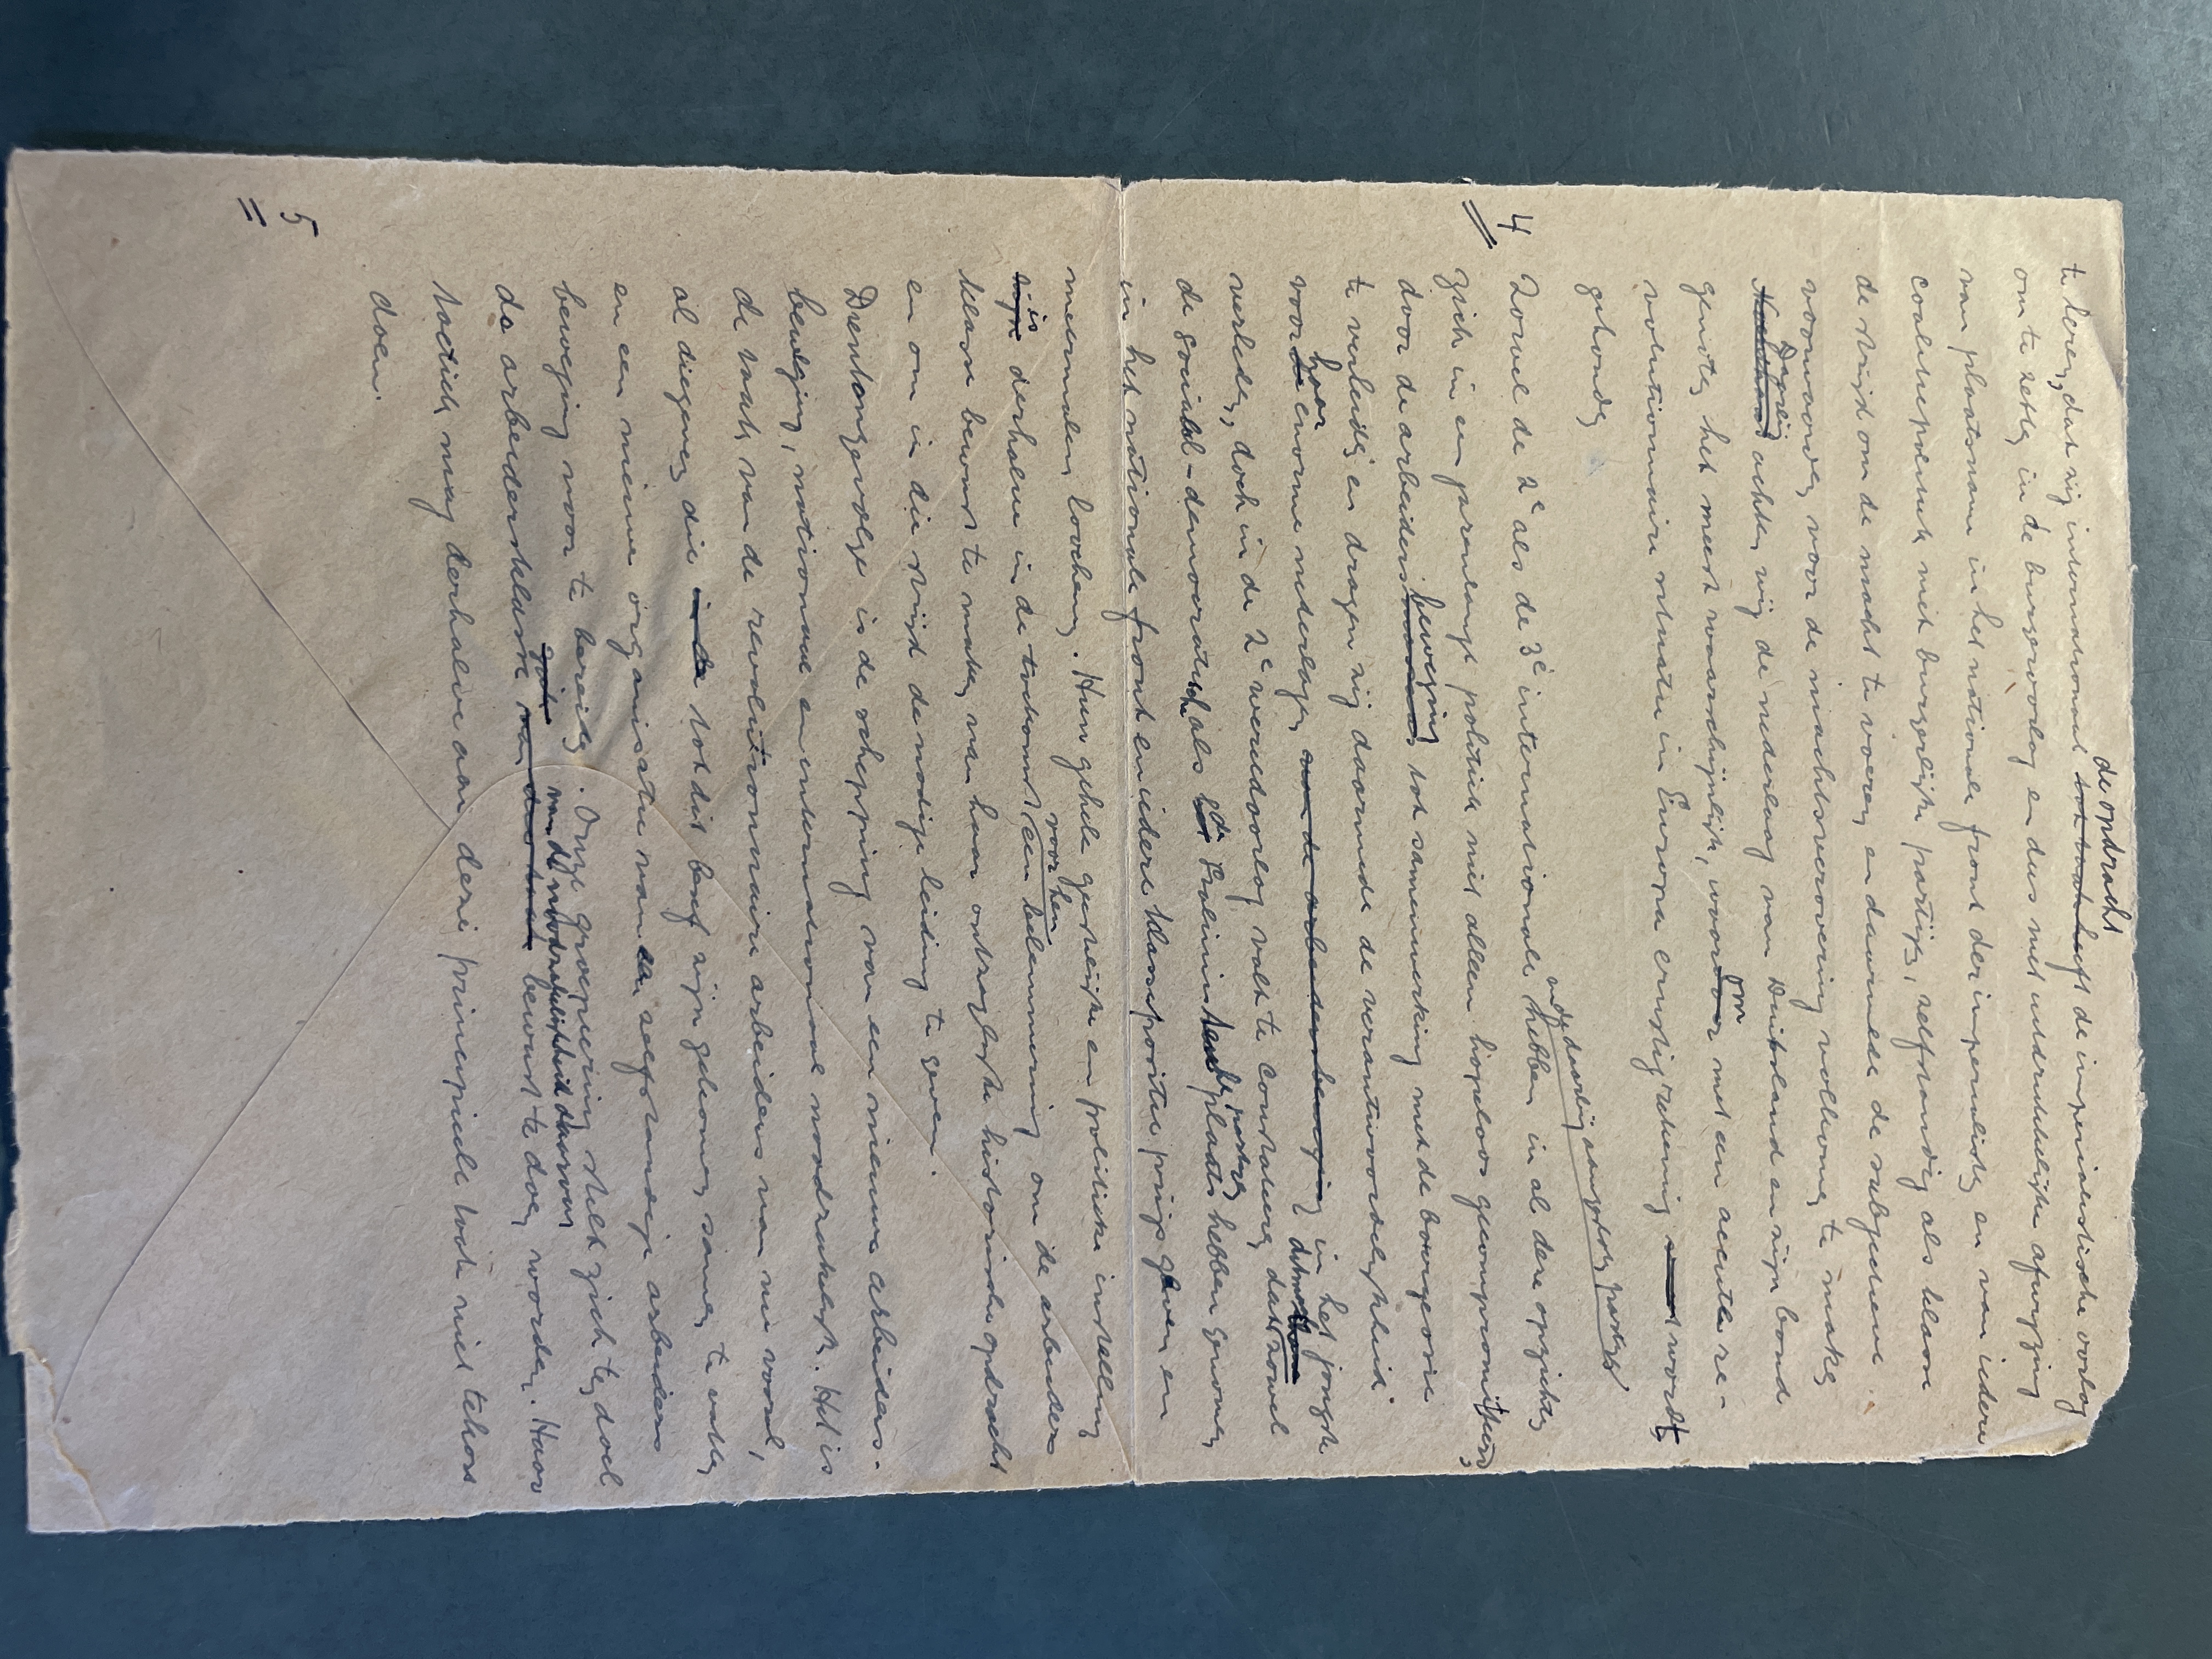 de opdracht
te leren, dat zij internationaal tot taak heeft de imperialistische oorlog
om te zetten in de burgeroorlog en dus met uitdrukkelijke afwijzing
van plaatsname in het nationale front der imperialisten en van iedere
coalitiepolitiek met burgerlijke partijen, zelfstandig als klasse
de strijd om de macht te voeren en daarmede de subjectieve
voorwaarden voor de machtsverovering volkomen te maken
Daarbij
achten wij de nederlaag van Duitsland en zijn bond-
genoten het meest waarschijnlijk, waarom met een accute re-
volutionaire situatie in Europa ernstig rekening wordt
gehouden
4
en de daarbij aangesloten partijen
Zowel de 2e als de 3e internationale hebben in al deze opzichten
zich in een jarenlange politiek niet alleen hopeloos gecompromitteerd,
door de arbeidersbeweging tot samenwerking met de bourgeoisie
te verleiden en dragen zij daarmede de verantwoordelijkheid
voor haar enorme nederlagen van de arbeidersbeweging in het jongste
verleden, doch in de 2e wereldoorlog valt te constateren dat zowel
de sociaal-democratische als de Stalinistische partijen plaats hebben genomen
in het nationale front en iedere klassepositie prijs geven en
meermalen loochenen. Hun gehele geestelijke en politieke instelling
is derhalve in de toekomst voor hen een belemmering om de arbeiders
klasse bewust te maken van haar ontzaglijke historische opdracht
en om in die strijd de nodige leiding te geven.
5
Dientengevolge is de schepping van een nieuwe arbeiders-
beweging, nationaal en internationaal noodzakelijk. Het is
de taak van de revolutionaire arbeiders van nu vooral,
al diegenen die in de tot dit besef zijn gekomen samen te vatten
en een nieuwe organisatie van een zelfstandige arbeiders
beweging voor te bereiden. Onze groepering stelt zich ten doel
de arbeidersklasse van de noodzakelijkheid daarvan bewust te doen worden. Haar
tactiek mag derhalve aan deze principiële taak niet tekort
doen.